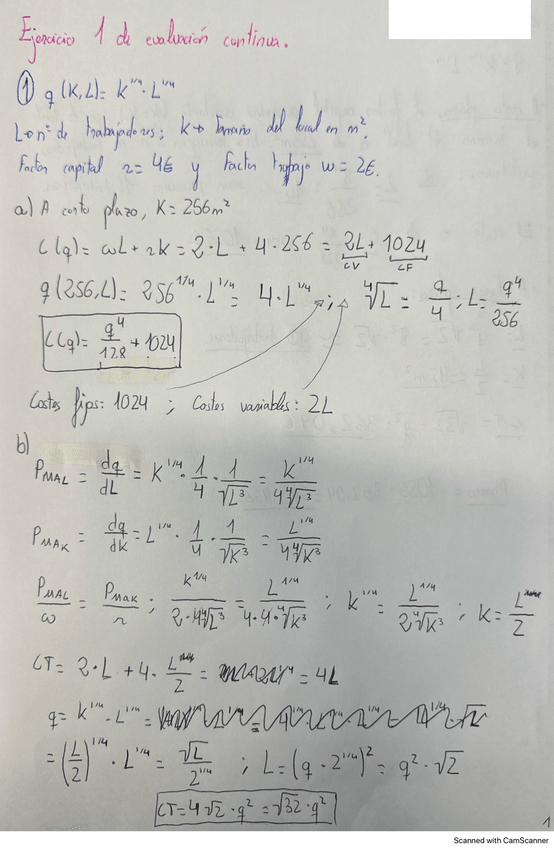 Ejercicio 1 de evaluación continua.
① q(K,L) = K^1/4 · L^1/4
L→ nº de trabajadores; K→ tamaño del local en m².
Factor capital r = 4€ y Factor trabajo w = 2€.
a) A corto plazo, K = 256m²
C(q) = wL + rk = 2·L + 4·256 = 2L + 1024
CV CF
q(256,L) = 256^1/4 · L^1/4 = 4·L^1/4 ; ∜L = q/4 ; L = q⁴/256
C(q) = q⁴/128 + 1024
Costes fijos: 1024 ; Costes variables: 2L
b)
PMAL = dq/dL = K^1/4 · 1/4 · 1/∜L³ = K^1/4/4∜L³
PMAK = dq/dk = L^1/4 · 1/4 · 1/∜K³ = L^1/4/4∜K³
PMAL/w = PMAK/r ; K^1/4/2·4∜L³ = L^1/4/4·4·∜K³ ; K^1/4 = L^1/4/2∜K³ ; K = L/2
CT = 2·L + 4·L/2 = 4L
q = K^1/4 · L^1/4 =
= (L/2)^1/4 · L^1/4 = √L/2^1/4 ; L = (q · 2^1/4)² = q² · √2
CT = 4√2 · q² = √32 · q²
1
Scanned with CamScanner